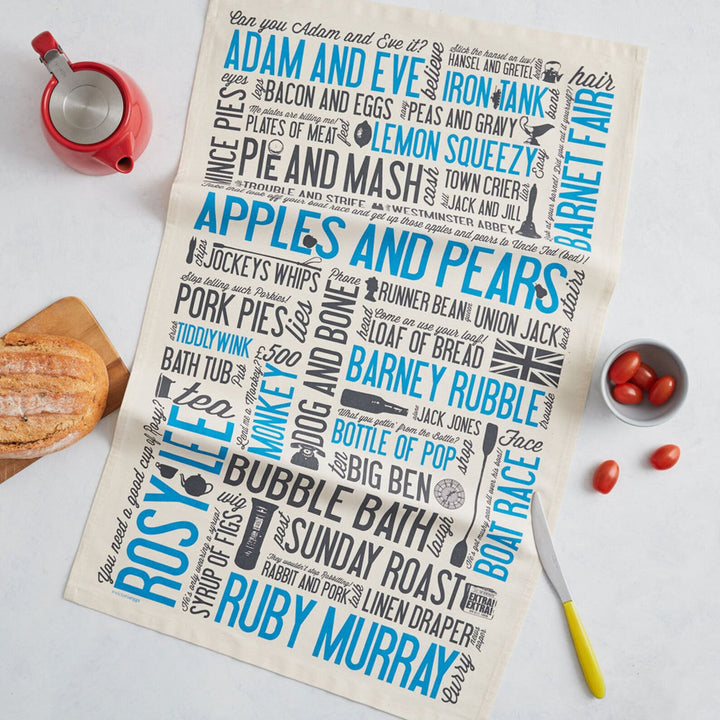 Can you Adam and Eve it?
ADAM AND EVE
believe
Stick the hansel on luv!
HANSEL AND GRETEL
kettle
IRON TANK
bank
hair
eyes
legs
BACON AND EGGS
navy
PEAS AND GRAVY
MINCE PIES
Me plates are killing me!
PLATES OF MEAT
feet
LEMON SQUEEZY
Easy
PIE AND MASH
cash
TOWN CRIER
liar
hill
JACK AND JILL
TROUBLE AND STRIFE
WESTMINSTER ABBEY
BARNET FAIR
Look at your barnet! Did you cut it yourself?
Take that lave off your boat race and get up those apples and pears to Uncle Ted (bed)!
APPLES AND PEARS
stairs
chips
JOCKEYS WHIPS
Stop telling such Porkies!
PORK PIES
lies
Phone
DOG AND BONE
RUNNER BEAN
queen
UNION JACK
back
Come on use your loaf!
head
LOAF OF BREAD
drink
TIDDLYWINK
BATH TUB
Pub
£500
Lend me a Monkey?
MONKEY
BARNEY RUBBLE
trouble
JACK JONES
What you gettin' from the Bottle?
BOTTLE OF POP
stop
tea
You need a good cup of Rosy!
ROSY LEE
ten
BIG BEN
Face
BOAT RACE
He's got mushy peas all over his boat!
BUBBLE BATH
laugh
wig
He's only wearing a syrup!
SYRUP OF FIGS
post
SUNDAY ROAST
They wouldn't stop Rabbiting!
RABBIT AND PORK
talk
LINEN DRAPER
news paper
EXTRA!
EXTRA!
RUBY MURRAY
Curry